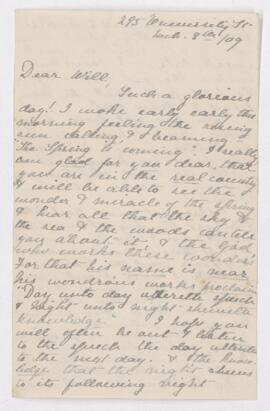 295 University St
Mch. 8th/09
Dear Will,
Such a glorious
day! I wake early early this
morning feeling the rising
sun calling, & beaming
"The Spring is coming". I really
am glad for you dear, that
you are in the real country
& will be able to see the
wonder & miracle of the spring
& hear all that the sky &
the sea & the woods can tell
you about it, & the God
who works these wonders
For that his name is near
his wondrous works proclaim
"Day unto day uttereth speech
& Night unto night sheweth
knowledge. I hope you
will often be out & listen
to the speech the day utters
to the next day. & the know-
ledge that the night shews
to its following night